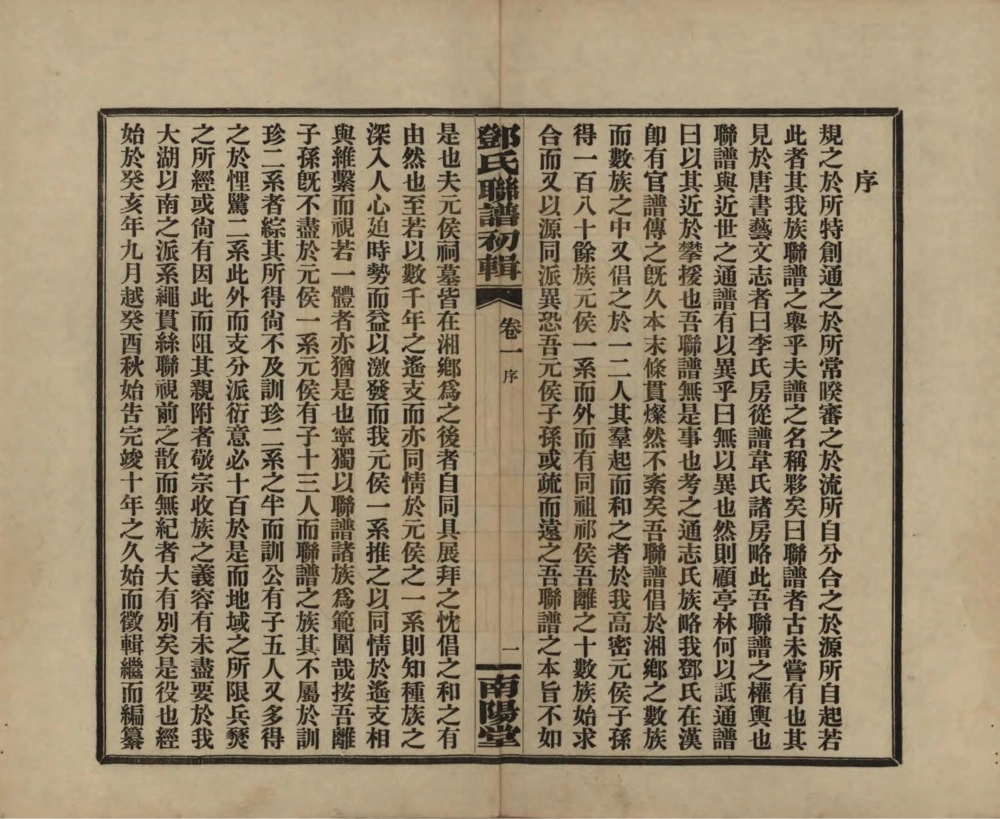 序
規之於所特創通之於所常暌審之於流所自分合之於源所自起若
此者其我族聯譜之舉乎夫譜之名稱夥矣曰聯譜者古未嘗有也其
見於唐書藝文志者曰李氏房從譜韋氏諸房略此吾聯譜之權輿也
聯譜與近世之通譜有以異乎曰無以異也然則顧亭林何以詆通譜
曰以其近於攀援也吾聯譜無是事也考之通志氏族略我鄧氏在漢
卽有官譜傳之旣久本末條貫燦然不紊矣吾聯譜倡於湘鄉之數族
而數族之中又倡之於一二人其羣起而和之者於我高密元侯子孫
得一百八十餘族元侯一系而外而有同祖祁侯吾離之十數族始求
合而又以源同派異恐吾元侯子孫或疏而遠之吾聯譜之本旨不如
鄧氏聯譜初輯
卷一
序
一
南陽堂
是也夫元侯祠墓皆在湘鄉爲之後者自同具展拜之忱倡之和之有
由然也至若以數千年之遙支而亦同情於元侯之一系則知種族之
深入人心廹時勢而益以激發而我元侯一系推之以同情於遙支相
與維繫而視若一體者亦猶是也寧獨以聯譜諸族爲範圍哉按吾離
子孫旣不盡於元侯一系元侯有子十三人而聯譜之族其不屬於訓
珍二系者綜其所得尙不及訓珍二系之半而訓公有子五人又多得
之於悝騭二系此外而支分派衍意必十百於是而地域之所限兵燹
之所經或尙有因此而阻其親附者敬宗收族之義容有未盡要於我
大湖以南之派系繩貫絲聯視前之散而無紀者大有別矣是役也經
始於癸亥年九月越癸酉秋始告完竣十年之久始而徵輯繼而編纂